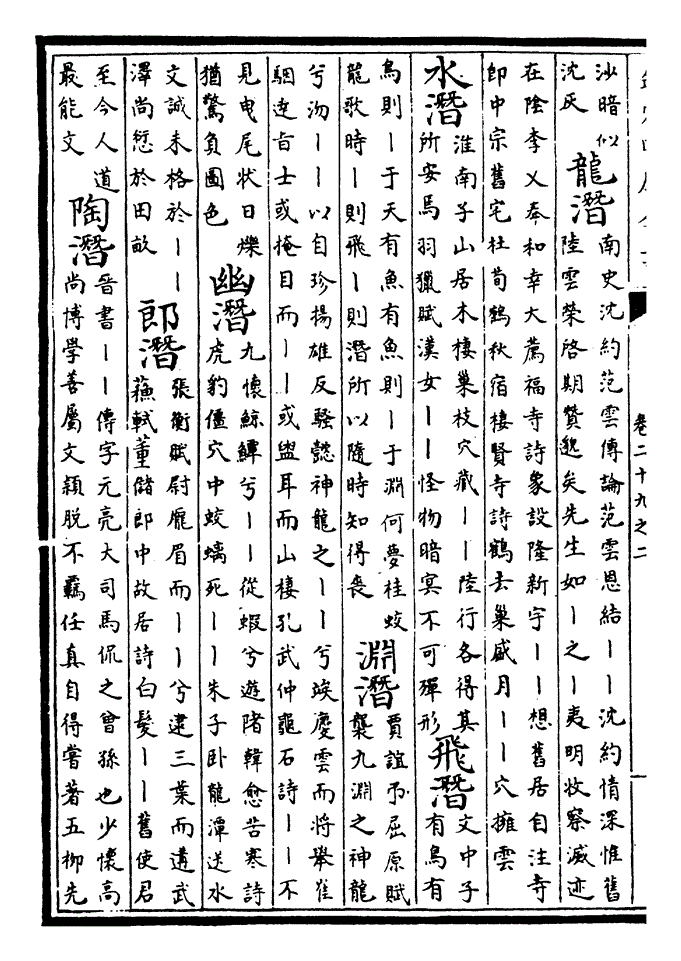 卷二十九之二
沙暗似
沈灰
龍潛
南史沈約范雲傳論范雲恩結｜｜沈約情深惟舊
陸雲榮啓期贊邈矣先生如｜之｜夷明收察滅迹
在陰李乂奉和幸大薦福寺詩象設隆新宇｜｜想舊居自注寺
即中宗舊宅杜荀鶴秋宿棲賢寺詩鶴去巢盛月｜｜穴擁雲
水潛
淮南子山居木棲巢枝穴藏｜｜陸行各得其
所安馬羽獵賦漢女｜｜怪物暗冥不可殫形
飛潛
文中子
有鳥有
鳥則｜于天有魚有魚則｜于淵何夢桂蛟
龍歌時｜則飛｜則潛所以隨時知得喪
淵潛
賈誼弔屈原賦
襲九淵之神龍
兮沕｜｜以自珍揚雄反騷懿神龍之｜｜兮竢慶雲而將舉崔
駰達旨士或掩目而｜｜或盥耳而山棲孔武仲龜石詩｜｜不
見曳尾狀日爍
猶驚負圖色
幽潛
九懷鯨鱏兮｜｜從蝦兮遊陼韓愈苦寒詩
虎豹僵穴中蛟螭死｜｜朱子卧龍潭送水
文誠未格於｜｜
澤尚愆於田畝
郎潛
張衡賦尉厖眉而｜｜兮逮三葉而遘武
蘓軾董儲郎中故居詩白髮｜｜舊使君
至今人道
最能文
陶潛
晉書｜｜傳字元亮大司馬侃之曾孫也少懷高
尚博學善屬文穎脫不羈任真自得嘗著五柳先